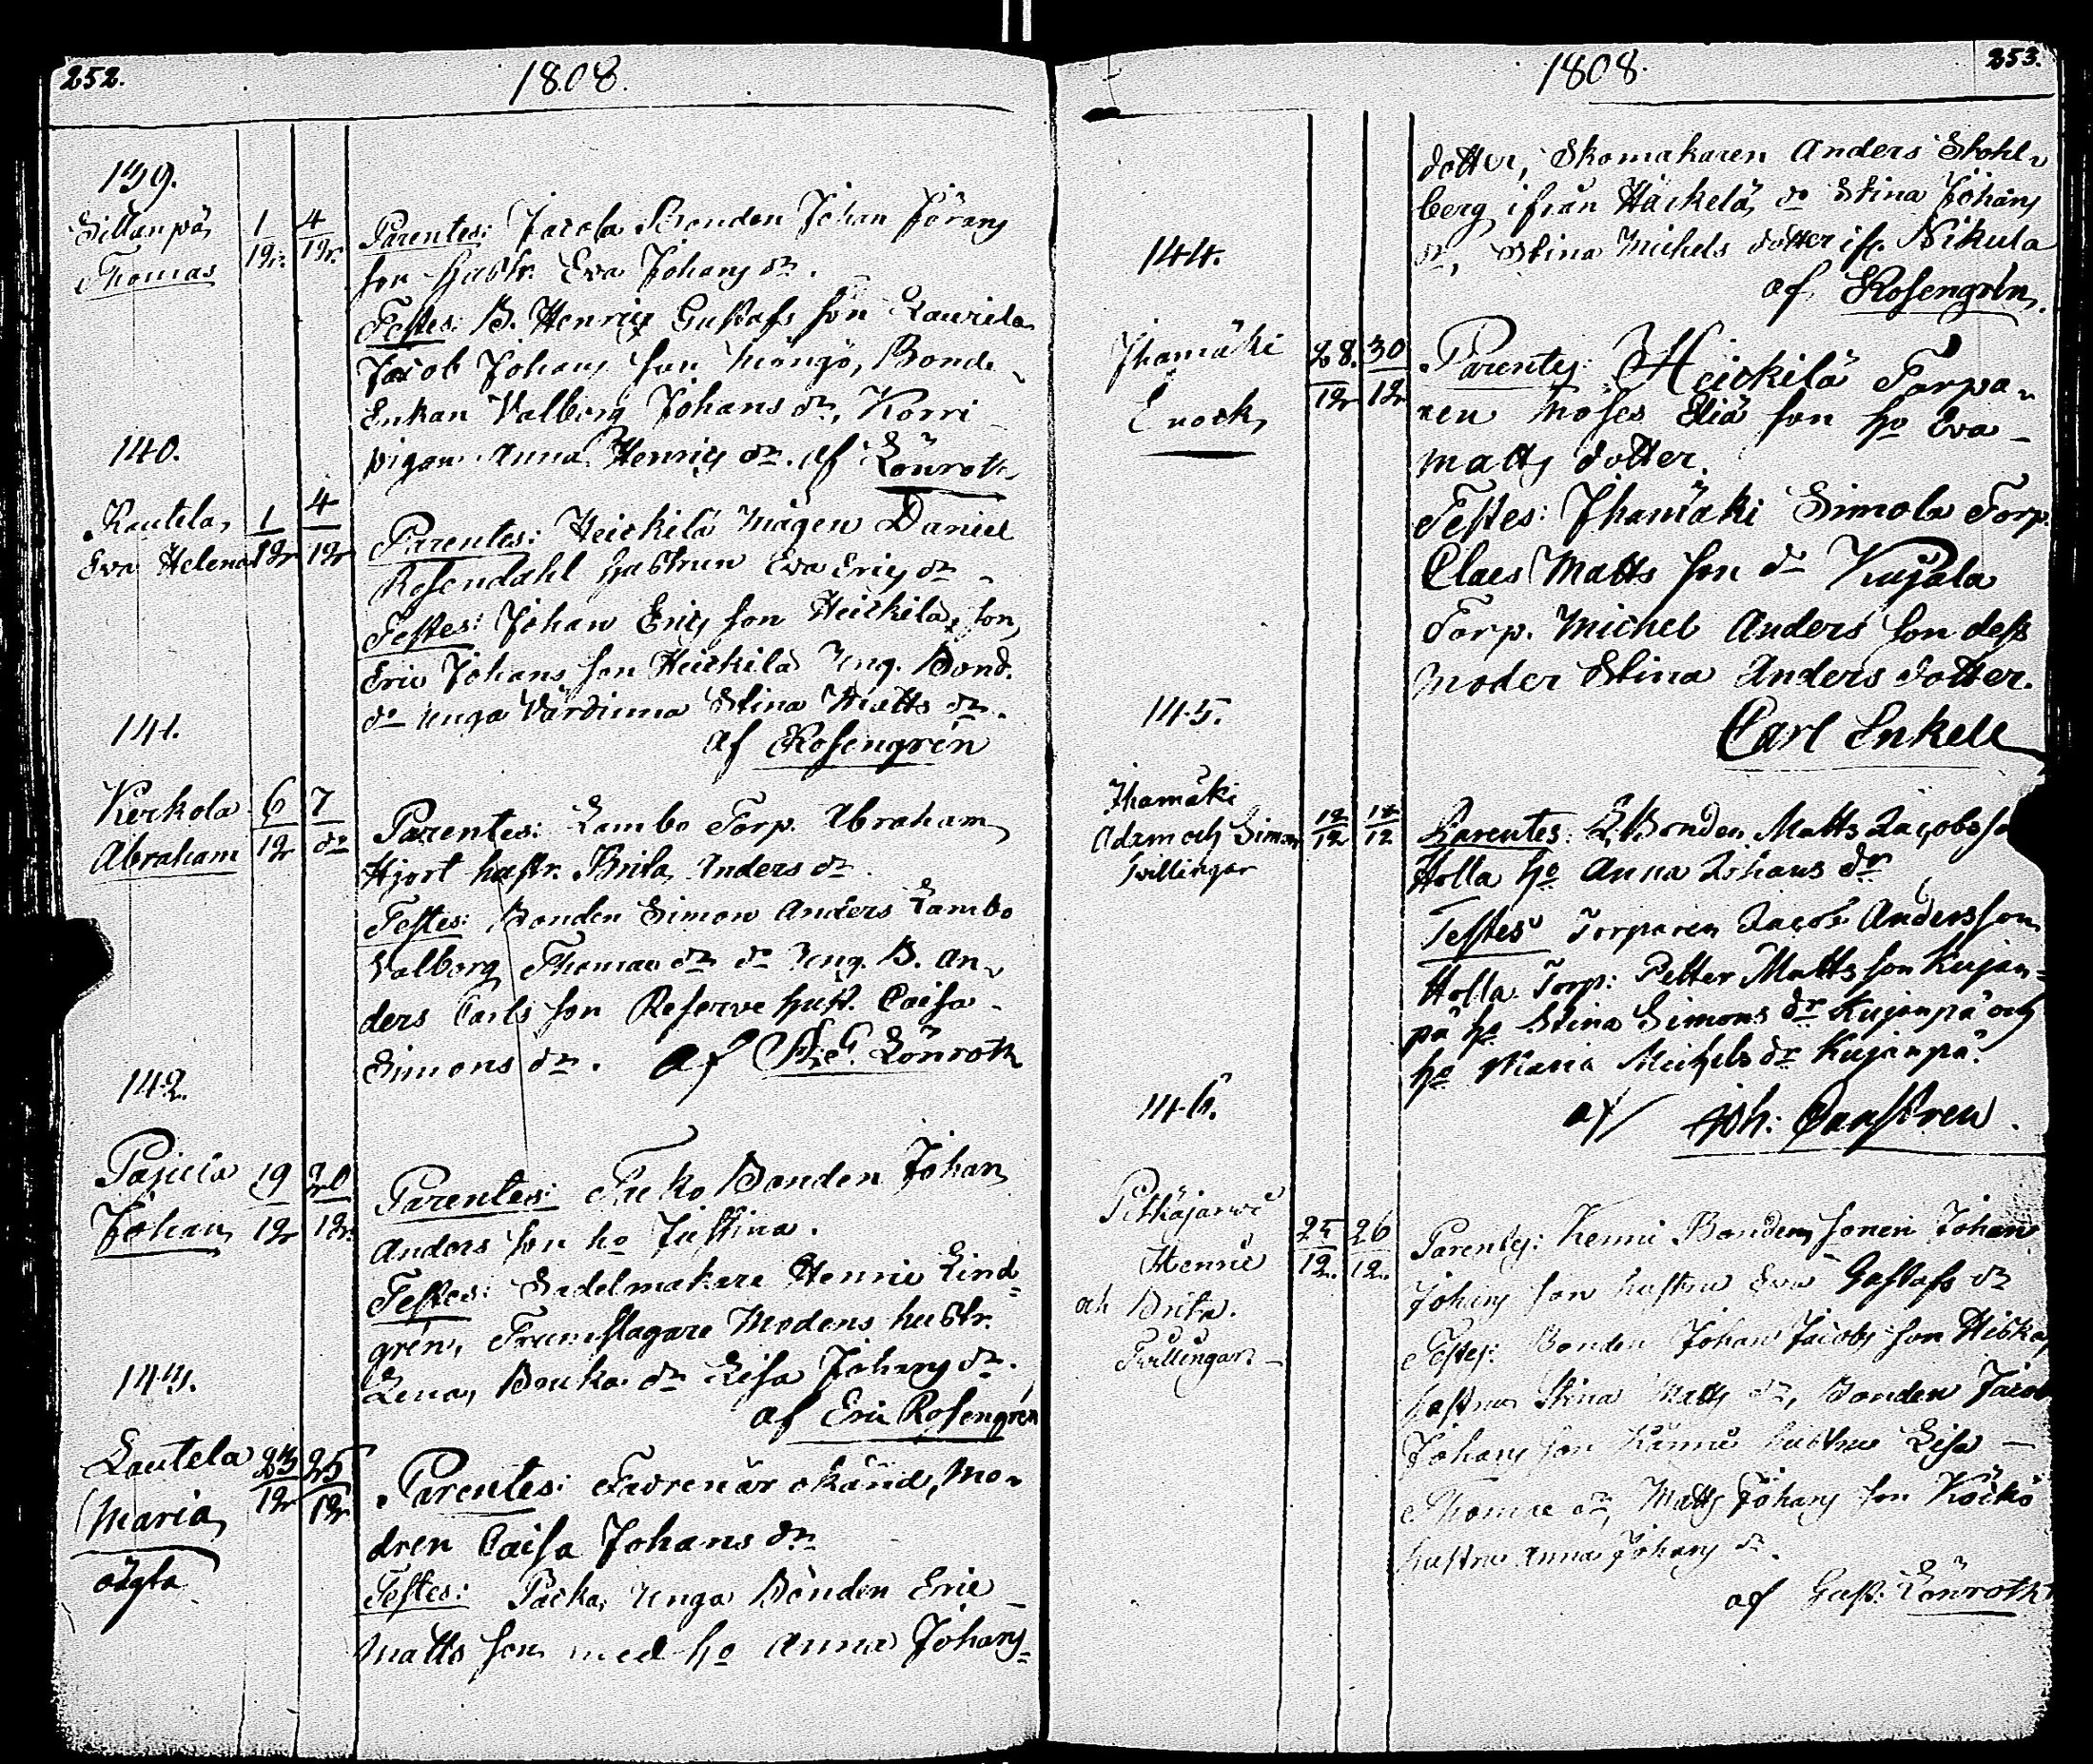 252.
1808.
139.
Sillanpä,
Thomas
1/12. 4/12.
Parentes: Jacola Bonden Johan Jörans
son hustr. Eva Johans dr.
Testes: B. Henrics Gustafs son Laurila
Jacob Johans son Mångö, Bonde
Enkan Valborg Johans dr, Korri
pigan Anna Henrics dr. af Lönroth
140.
Rautela,
Eva Helena
1/12 4/12
Parentes: Heickilä Mågen Daniel
Rosendahl hustrun Eva Erics dr
Testes: Johan Erics son Heickilä, son,
Eric Johans son Heickilä Ung. Bond.
do unga Värdinna Stina Matts dr.
af Rosengrén
141.
Kerkola
Abraham
6/12 7/do
Parentes: Lambo Torp. Abraham
Hjort hustr. Brita Anders dr.
Testes: Bonden Simon Anders Lambo
Valborg Thomae dr do Ung. B. An-
ders Carls son Reserve hust. Caisa
Simons dr. af Lönroth
142.
Pajula
Johan
19/12 20/12.
Parentes: Bonden Johan
Anders son ho Justina.
Testes: Sadelmakare Henric Lind-
grén, Trumslagare Modens hustr.
Lena, Bouka dr Lisa Johans dr.
af Eric Rosengrén
143.
Lautela
Maria,
oägta
23/12 25/12
Parentes: Fadren är okänd, Mo-
dren Caisa Johans dr
Testes: Packa, Unga Bonden Eric
Matts son med ho Anna Johans-
1808.
253.
dotter, Skomakaren Anders Stohl-
berg ifrån Häckelä, do Stina Johans
dr, Stina Michels dotter ifr. Nikula
af Rosengrén.
144.
Jhamäki
Enock,
28./12 30/12
Parentes: Heickilä Torpa-
ren Moses Eliä son ho Eva
Matts dotter.
Testes: Jhamäki Simola Torp.
Claes Matts son do Kujala
Torp. Michel Anders son dess
moder Stina Anders dotter.
Carl Enkell
145.
Jhamäki
Adam och Simon
Tvillingar
12/12 12/12
Parentes: Bonden Matts Jacobs so
Holla ho Anna Johans dr
Testes Torparen Jacob Anders son
Holla Torp: Petter Matts son Kujan-
pä ho Stina Simons dr Kujanpä och
ho Maria Michels dr Kujanpä.
af Joh: Castren.
146.
Pitkäjarwi
Henric
och Brita.
Tvillingar.
25/12. 26/12.
Parentes: Kenni Bonden, sonen Johan
Johans son hustru Eva Gustafs dr
Testes: Bonden Johan Jacobs son Hiska,
hustru Stina Matts dr, Bonden Jacob
Johans son Känni hustru Lisa
Thomae dr, Matts Johans son Köckö
hustru Anna Johans dr.
af Gust. Lönroth